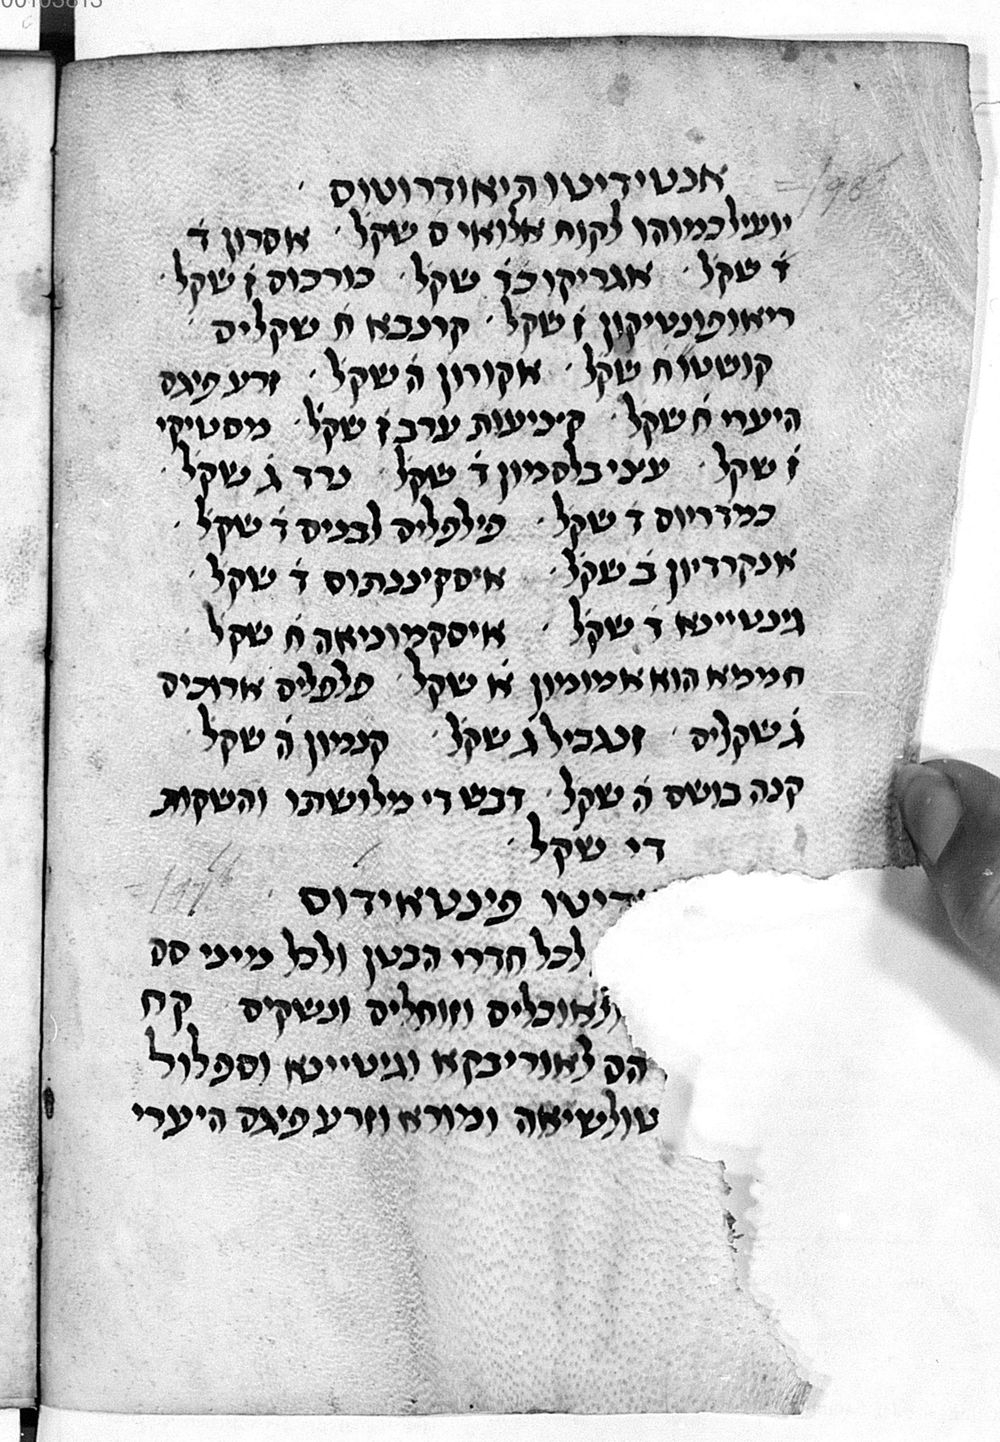 אנטידיטו תיאודרוטוס
יועיל כמוהו לקוח אלואי ס שקל׳ אסרון ד׳
ד׳ שקל׳ אגריקו כ״ד שקל׳ כורכוס ז שקל׳
ריאופונטיקון ז׳ שקל׳ קרנבא ח׳ שקלים
קושטו ח שקל׳ אקורון ה׳ שקל׳ זרע פיגם
היערי ח׳ שקל׳ קציעות ערב ז׳ שקל׳ מסטיקי
ז׳ שקל׳ עצי בלסמון ד׳ שקל׳ נרד ג׳ שקל׳
כמדריוס ד׳ שקל׳ פילפלים לבנים ד׳ שקל׳
אנקרדיון ב׳ שקל׳ איסקיננתוס ד׳ שקל׳
גינטייינא ד׳ שקל׳ איסקמוניאה ח׳ שקל׳
חממא הוא אמומון א׳ שקל׳ פלפלים ארוכים
ג׳ שקלים זנגביל ג׳ שקל׳ קנמון ה׳ שקל׳
קנה בושם ה׳ שקל׳ דבש די מלושתו והשקות
די שקל׳
דיטו פינטאידוס
לכל חדרי הבטן ולכל מיני סם
ולאוכלים וזוחלים ונשקים קח
הם לאוריבקא וגינטייינא וספלול
טולשיאה ומורא וזרע פיגם היערי